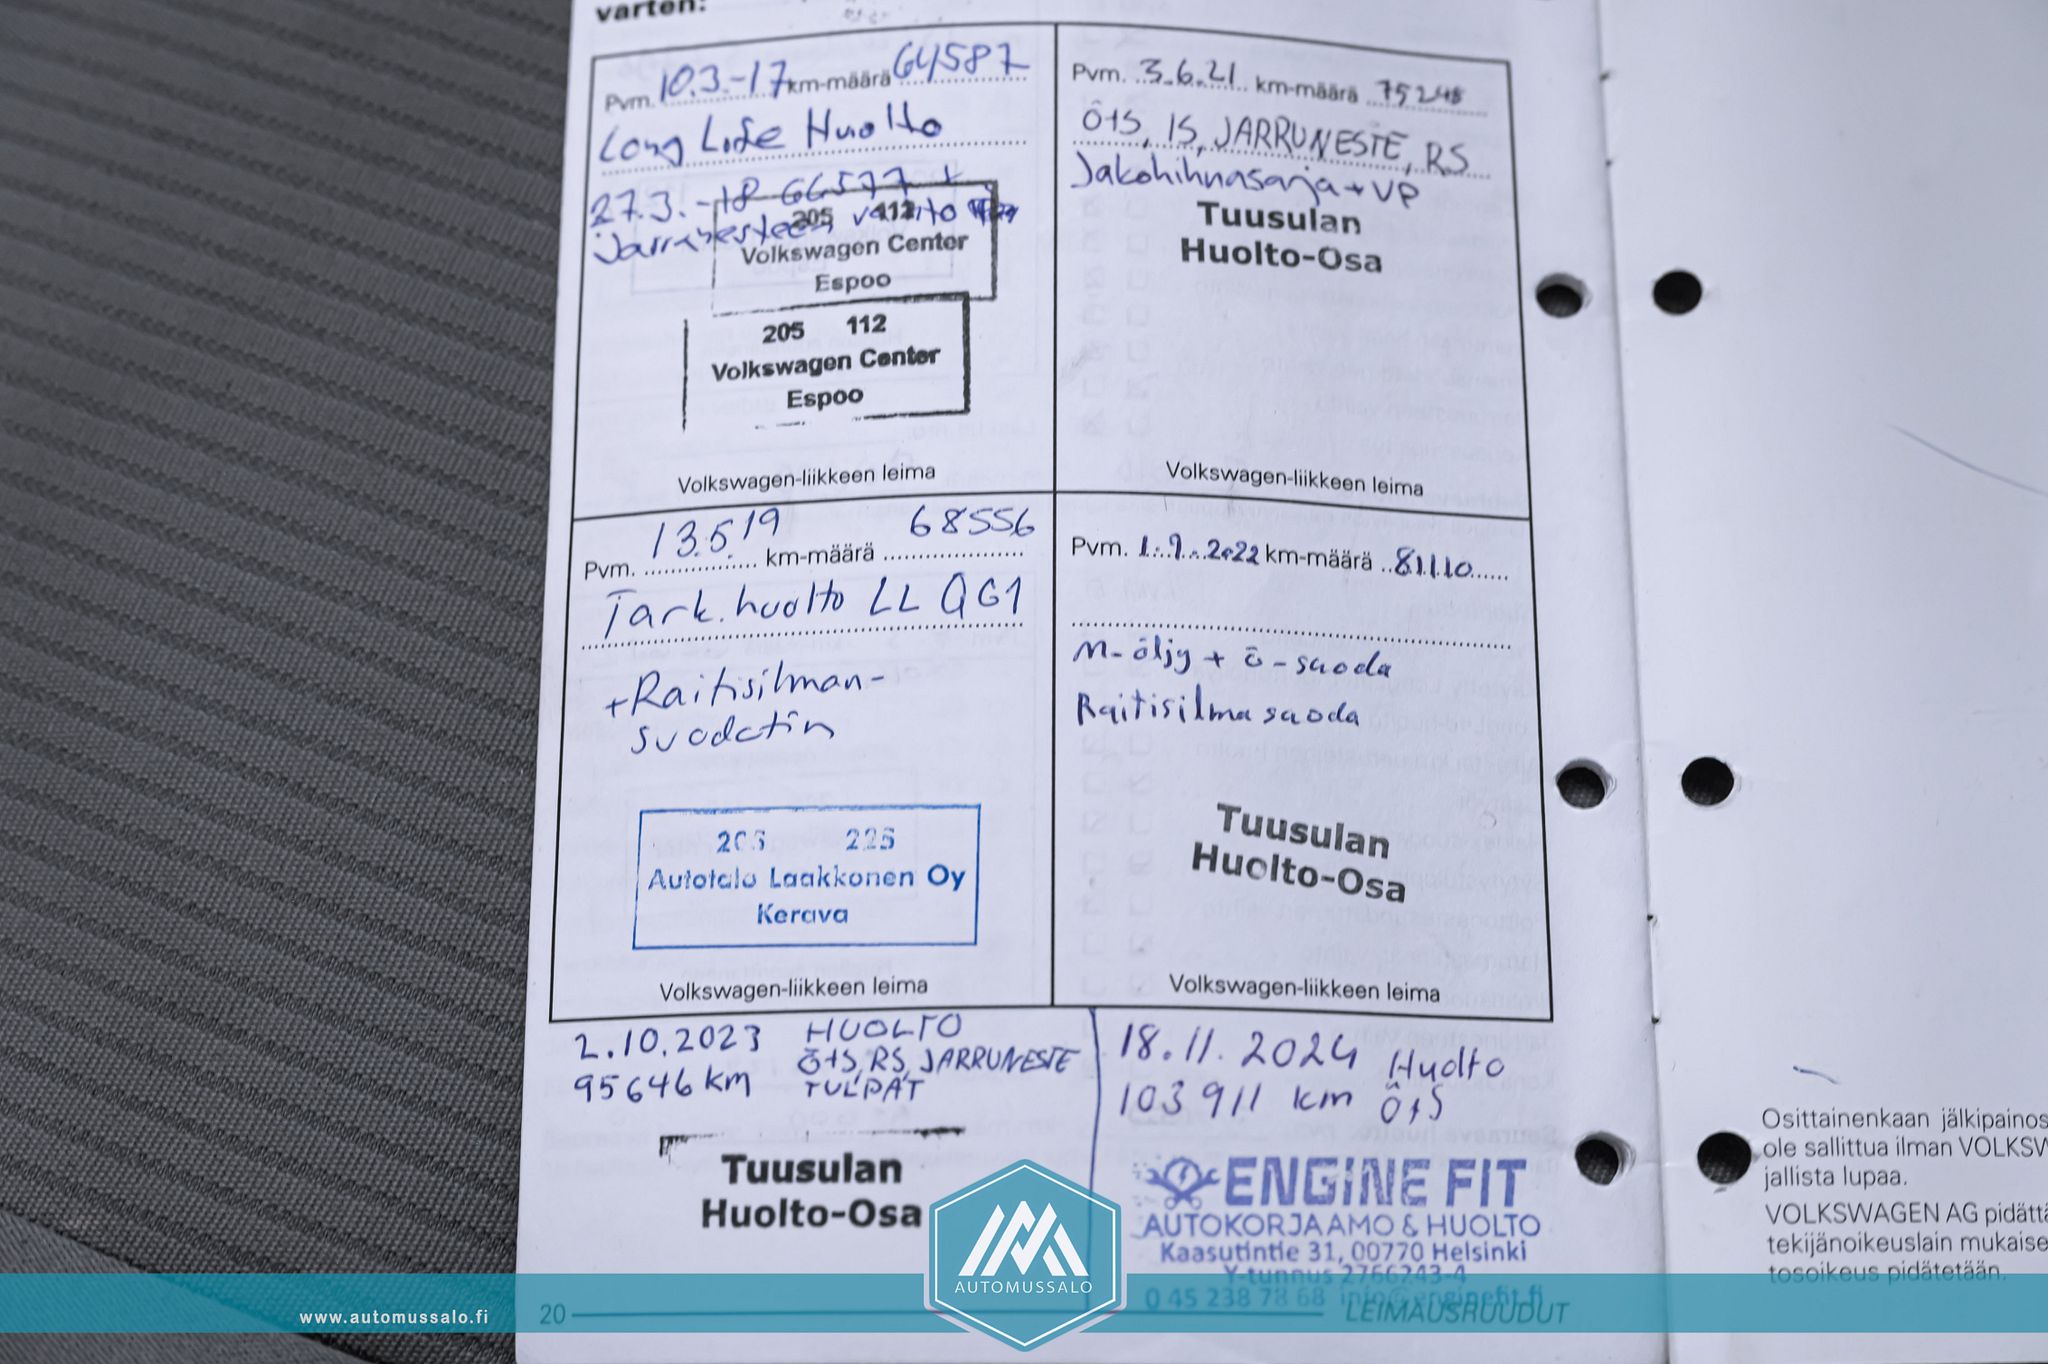 varten:
Pvm. 10.3.-17 km-määrä 64587
Long Life Huolto
27.3.-18 66577
Jarrunesteen vaihto
205 112
Volkswagen Center
Espoo
205 112
Volkswagen Center
Espoo
Volkswagen-liikkeen leima
Pvm. 3.6.21 km-määrä 75248
Ö+S, IS, JARRUNESTE, RS
Jakohihnasarja + VP
Tuusulan
Huolto-Osa
Volkswagen-liikkeen leima
Pvm. 13.5.19 km-määrä 68556
Tark. huolto LL QG1
+Raitisilman-
suodatin
205 225
Autotalo Laakkonen Oy
Kerava
Volkswagen-liikkeen leima
Pvm. 1.9.2022 km-määrä 81110
M-öljy + ö-suoda
Raitisilmasuoda
Tuusulan
Huolto-Osa
Volkswagen-liikkeen leima
2.10.2023 HUOLTO
95646 km Ö+S, RS, JARRUNESTE
TULPAT
Tuusulan
Huolto-Osa
18.11.2024 Huolto
103911 km Ö+S
ENGINE FIT
AUTOKORJAAMO & HUOLTO
Kaasutintie 31, 00770 Helsinki
Y-tunnus 2766243-4
0 45 238 78 68 info@enginefit.fi
20
LEIMAUSRUUDUT
Osittainenkaan jälkipainos
ole sallittua ilman VOLKSW
jallista lupaa.
VOLKSWAGEN AG pidättä
tekijänoikeuslain mukaise
tosoikeus pidätetään.
AUTOMUSSALO
www.automussalo.fi